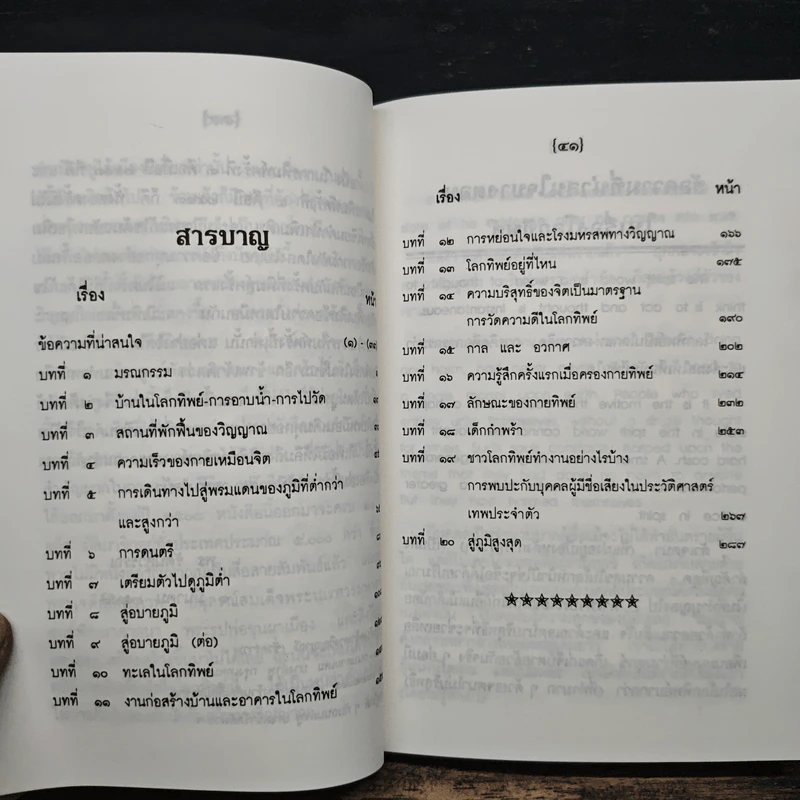 สารบาญ
เรื่อง
ข้อความที่น่าสนใจ
บทที่ ๑ มรณกรรม
บทที่ ๒ บ้านในโลกทิพย์-การอาบน้ำ-การไปวัด
บทที่ ๓ สถานที่พักฟื้นของวิญญาณ
บทที่ ๔ ความเร็วของกายเหมือนจิต
บทที่ ๕ การเดินทางไปสู่พรมแดนของภูมิที่ต่ำกว่า
และสูงกว่า
บทที่ ๖ การดนตรี
บทที่ ๗ เตรียมตัวไปดูภูมิต่ำ
บทที่ ๘ สู่อบายภูมิ
บทที่ ๙ สู่อบายภูมิ (ต่อ)
บทที่ ๑๐ ทะเลในโลกทิพย์
บทที่ ๑๑ งานก่อสร้างบ้านและอาคารในโลกทิพย์
{๔๑}
เรื่อง หน้า
บทที่ ๑๒ การหย่อนใจและโรงมหรสพทางวิญญาณ ๑๖๖
บทที่ ๑๓ โลกทิพย์อยู่ที่ไหน ๑๗๕
บทที่ ๑๔ ความบริสุทธิ์ของจิตเป็นมาตรฐาน
การวัดความดีในโลกทิพย์ ๑๙๐
บทที่ ๑๕ กาล และ อวกาศ ๒๐๒
บทที่ ๑๖ ความรู้สึกครั้งแรกเมื่อครองกายทิพย์ ๒๑๔
บทที่ ๑๗ ลักษณะของกายทิพย์ ๒๓๒
บทที่ ๑๘ เด็กกำพร้า ๒๕๓
บทที่ ๑๙ ชาวโลกทิพย์ทำงานอย่างไรบ้าง
การพบปะกับบุคคลผู้มีชื่อเสียงในประวัติศาสตร์
เทพประจำตัว ๒๖๗
บทที่ ๒๐ สู่ภูมิสูงสุด ๒๘๗